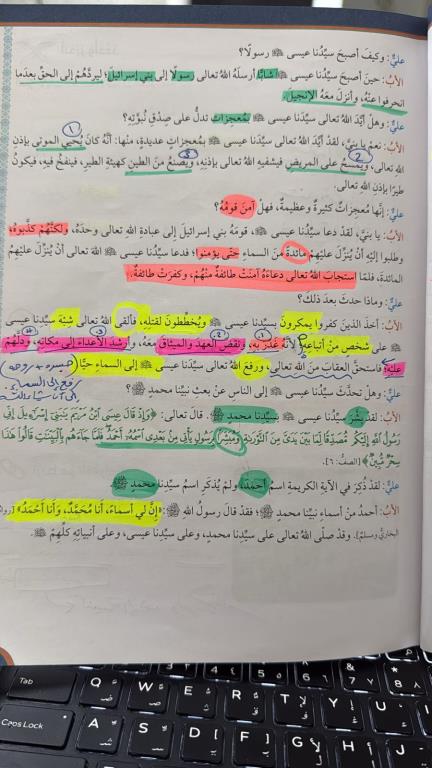 عليٌّ: وكيفَ أصبحَ سيِّدُنا عيسى ﷺ رسولًا؟
الأبُ: حينَ أصبحَ سيِّدُنا عيسى ﷺ شابًّا أرسلَهُ اللهُ تعالى رسولًا إلى بني إسرائيلَ؛ ليردَّهُمْ إلى الحقِّ بعدَما
انحرفوا عنْهُ، وأنزلَ معَهُ الإنجيلَ.
عليٌّ: وهلْ أيَّدَ اللهُ تعالى سيِّدَنا عيسى ﷺ بمعجزاتٍ تدلُّ على صِدْقِ نُبوَّتِهِ؟
الأبُ: نعمْ يا بنيَّ، لقدْ أيَّدَ اللهُ تعالى سيِّدَنا عيسى ﷺ بمُعجزاتٍ عديدةٍ، منْها: أنَّهُ كانَ يُحيي الموتى بإذنِ
اللهِ تعالى، ويَمسحُ على المريضِ فيشفيهِ اللهُ تعالى بإذنِهِ، ويصنعُ منَ الطينِ كهيئةِ الطيرِ، فينفخُ فيهِ، فيكونُ
طيرًا بإذنِ اللهِ تعالى.
عليٌّ: إنَّها مُعجزاتٌ كثيرةٌ وعظيمةٌ، فهلْ آمنَ قومُهُ؟
الأبُ: يا بنيَّ، لقدْ دعا سيِّدُنا عيسى ﷺ، قومَهُ بني إسرائيلَ إلى عبادةِ اللهِ تعالى وحدَهُ، ولكنَّهُمْ كذَّبوهُ،
وطلبوا إليْهِ أنْ يُنزِّلَ عليْهِمْ مائدةً منَ السماءِ حتَّى يؤمنوا؛ فدعا سيِّدُنا عيسى ﷺ اللهَ تعالى أنْ يُنزِّلَ عليْهِمُ
المائدةَ، فلمَّا استجابَ اللهُ تعالى دعاءَهُ آمنَتْ طائفةٌ منْهُمْ، وكفرَتْ طائفةٌ.
عليٌّ: وماذا حدثَ بعدَ ذلكَ؟
الأبُ: أخذَ الذينَ كفروا يمكرونَ بسيِّدِنا عيسى ﷺ ويُخطِّطونَ لقتلِهِ، فألقى اللهُ تعالى شِبْهَ سيِّدِنا عيسى
ﷺ على شخصٍ منْ أتباعِهِ؛ لأنَّهُ غدرَ بهِ، ونقضَ العهدَ والميثاقَ معَهُ، وأرشدَ الأعداءَ إلى مكانِهِ، ودلَّهُمْ
عليْهِ؛ فاستحقَّ العقابَ منَ اللهِ تعالى، ورفعَ اللهُ تعالى سيِّدَنا عيسى ﷺ إلى السماءِ حيًّا.
جسده + روحه
رفع إلى السماء
عليٌّ: وهلْ تحدَّثَ سيِّدُنا عيسى ﷺ إلى الناسِ عنْ بعثِ نبيِّنا محمدٍ ﷺ؟
الأبُ: لقدْ بَشَّرَ سيِّدُنا عيسى ﷺ بسيِّدِنا محمدٍ ﷺ. قالَ تعالى: ﴿وَإِذْ قَالَ عِيسَى ابْنُ مَرْيَمَ يَٰبَنِي إِسْرَٰٓءِيلَ إِنِّي
رَسُولُ اللَّهِ إِلَيْكُم مُّصَدِّقًا لِّمَا بَيْنَ يَدَيَّ مِنَ التَّوْرَىٰةِ وَمُبَشِّرًا بِرَسُولٍ يَأْتِي مِنۢ بَعْدِي اسْمُهُۥٓ أَحْمَدُ فَلَمَّا جَآءَهُم بِالْبَيِّنَٰتِ قَالُوا هَٰذَا
سِحْرٌ مُّبِينٌ﴾ [الصف: ٦].
عليٌّ: لقدْ ذُكِرَ في الآيةِ الكريمةِ اسمُ أحمدَ، ولمْ يُذكَرِ اسمُ سيِّدِنا محمدٍ ﷺ.
الأبُ: أحمدُ منْ أسماءِ نبيِّنا محمدٍ ﷺ؛ فقدْ قالَ رسولُ اللهِ ﷺ: «إنَّ لي أسماءً، أنا مُحمَّدٌ، وأنا أحمدُ» [رواهُ
البخاريُّ ومسلمٌ]. وقدْ صلَّى اللهُ تعالى على سيِّدِنا محمدٍ، وعلى سيِّدِنا عيسى، وعلى أنبيائِهِ كلِّهِمْ ﷺ.
Tab Q W E R T Y U
Caps Lock A S D F G H J